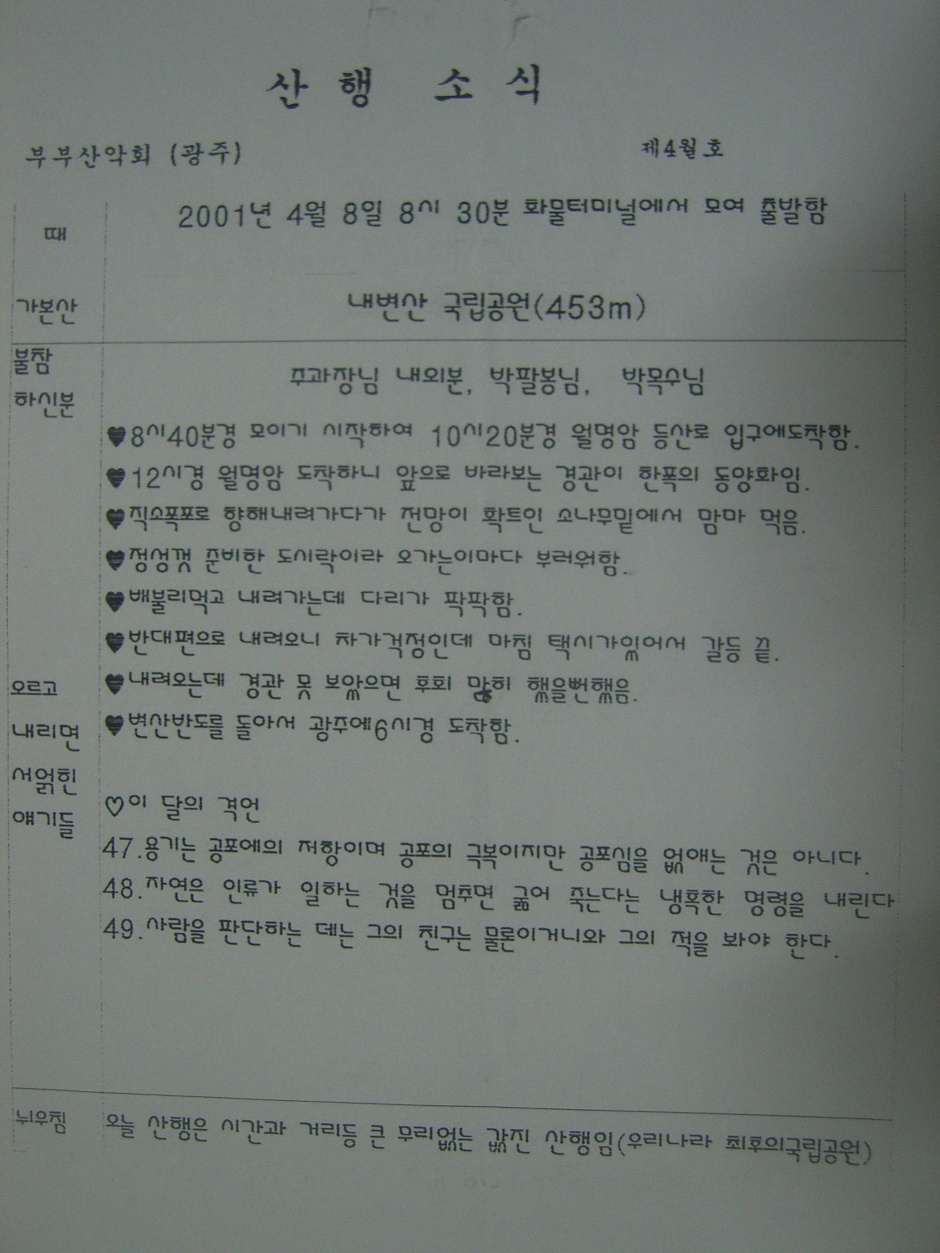 산 행 소 식
부부산악회 (광주) 제4월호
때 2001년 4월 8일 8시 30분 화물터미널에서 모여 출발함
가본산 내변산 국립공원(453m)
불참
하신분 주과장님 내외분, 박팔봉님, 박목수님
♥8시40분경 모이기 시작하여 10시20분경 월명암 등산로 입구에도착함.
♥12시경 월명암 도착하니 앞으로 바라보는 경관이 한폭의 동양화임.
♥직소폭포로 향해내려가다가 전망이 확트인 소나무밑에서 맘마 먹음.
♥정성껏 준비한 도시락이라 오가는이마다 부러워함.
♥배불리먹고 내려가는데 다리가 팍팍함.
♥반대편으로 내려오니 차가걱정인데 마침 택시가있어서 갈등 끝.
오르고 ♥내려오는데 경관 못 보았으면 후회 많히 했을뻔했음.
내리면 ♥변산반도를 돌아서 광주에6시경 도착함.
서얽힌
얘기들 ♡이 달의 격언
47.용기는 공포에의 저항이며 공포의 극복이지만 공포심을 없애는 것은 아니다.
48.자연은 인류가 일하는 것을 멈추면 굶어 죽는다는 냉혹한 명령을 내린다
49.사람을 판단하는 데는 그의 친구는 물론이거니와 그의 적을 봐야 한다.
뉘우침 오늘 산행은 시간과 거리등 큰 무리없는 값진 산행임(우리나라 최후의국립공원)